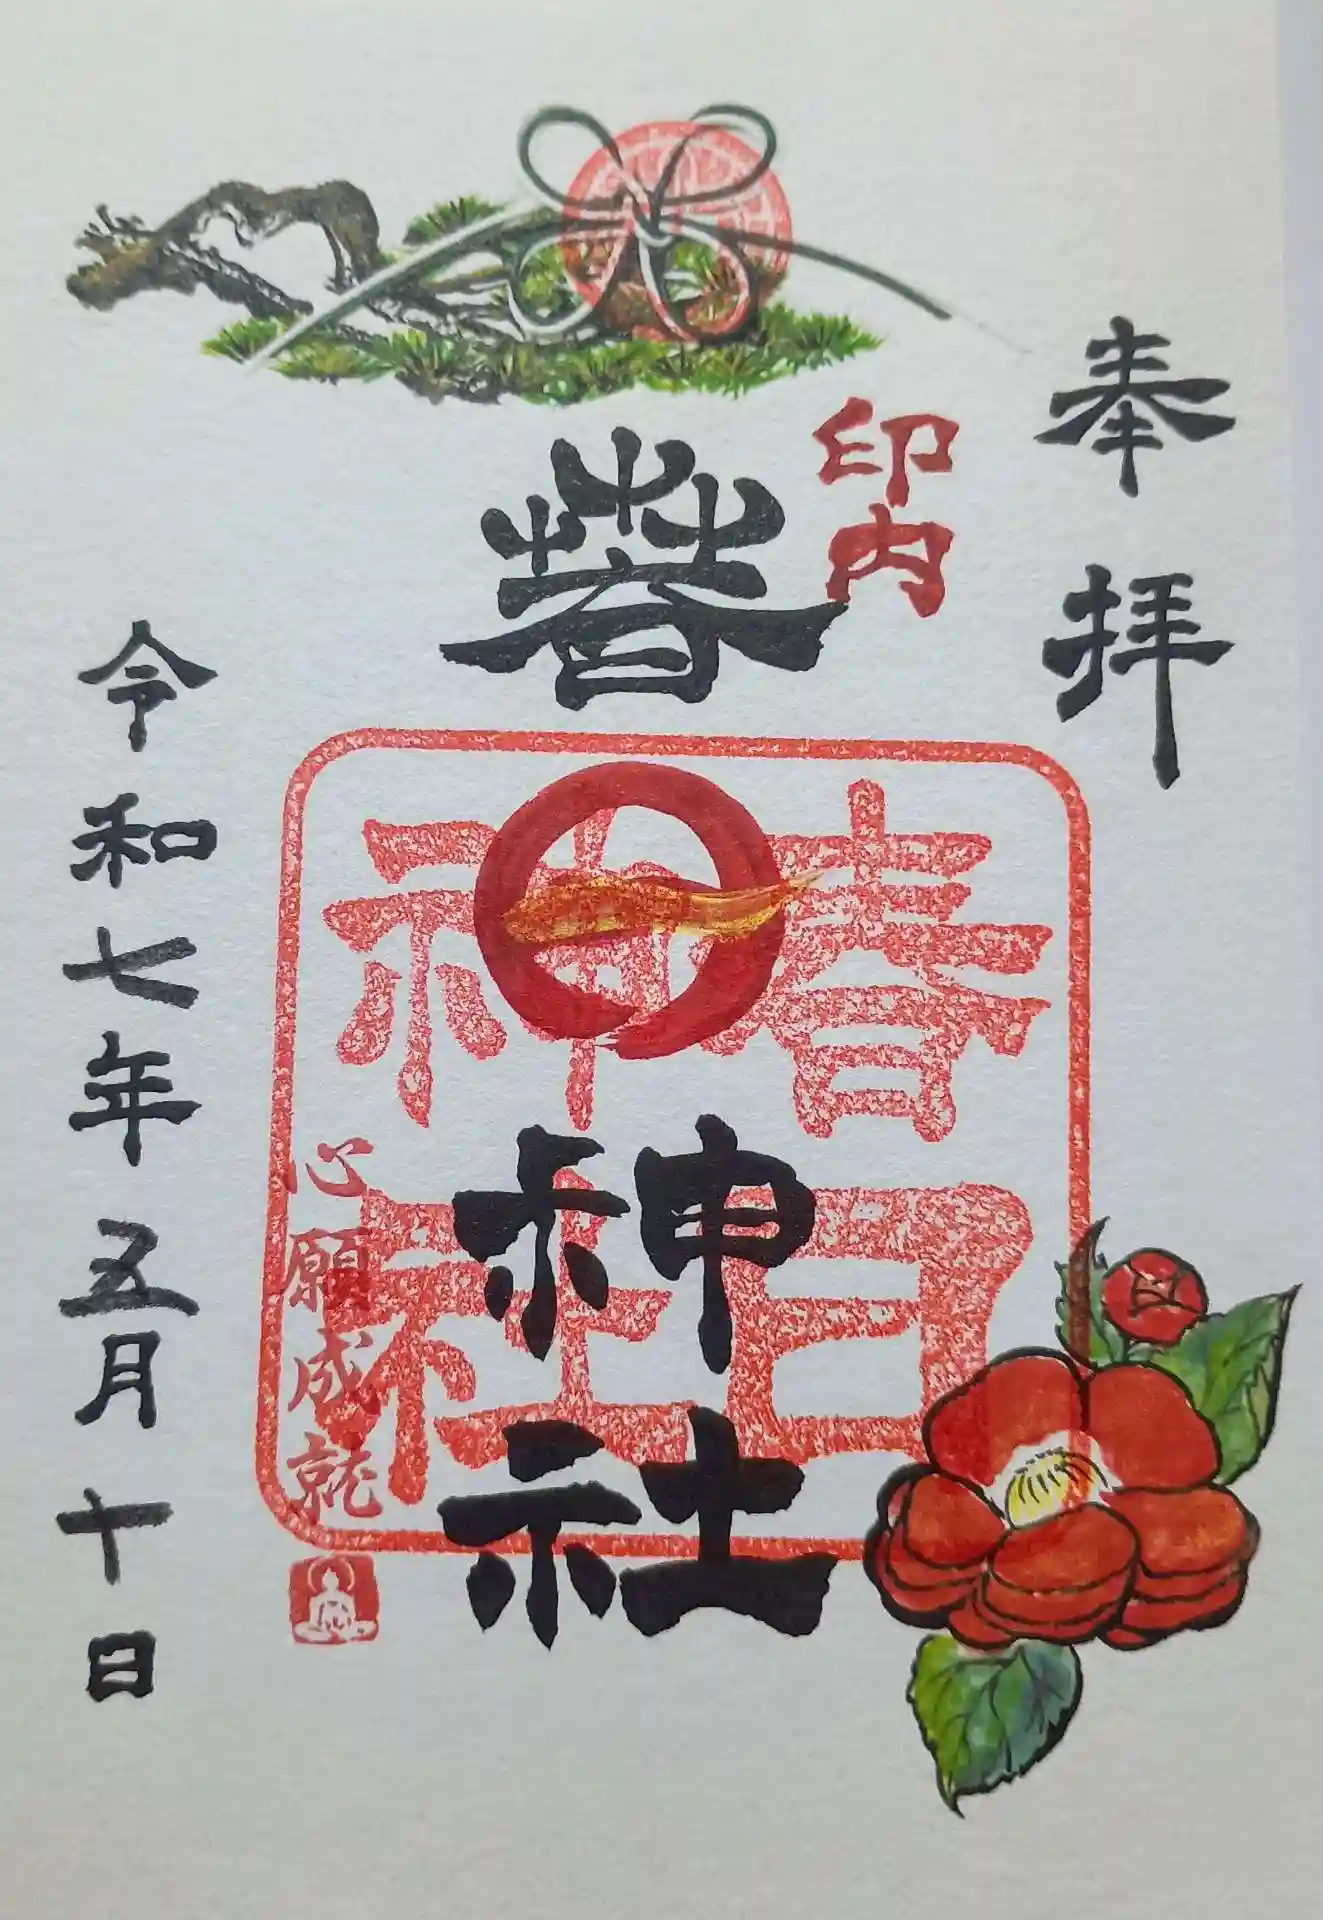 奉拝
印内
春日神社
春日神社
心願成就
令和七年五月十日